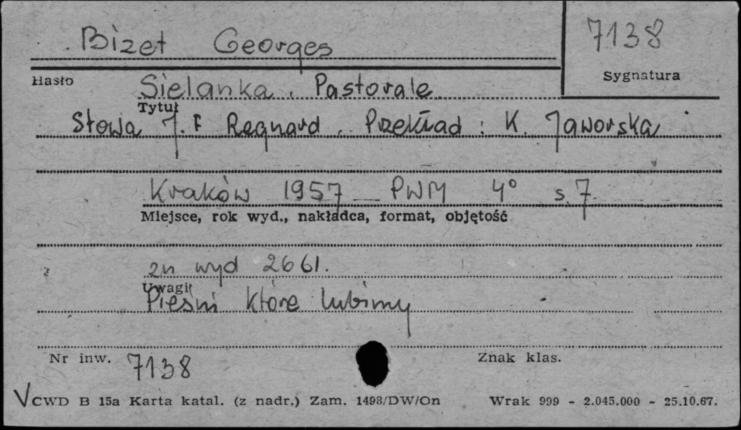 Bizet Georges
7138
Hasło
Sygnatura
Sielanka. Pastorale
Tytuł
Słowa J. F Regnard. Przekład: K. Jaworska
Kraków 1957 PWM 4° s. 7
Miejsce, rok wyd., nakładca, format, objętość
zn wyd 2661.
Uwagi
Pieśni które lubimy
Nr inw. 7138
Znak klas.
CWD B 15a Karta katal. (z nadr.) Zam. 1498/DW/On Wrak 999 - 2.045.000 - 25.10.67.